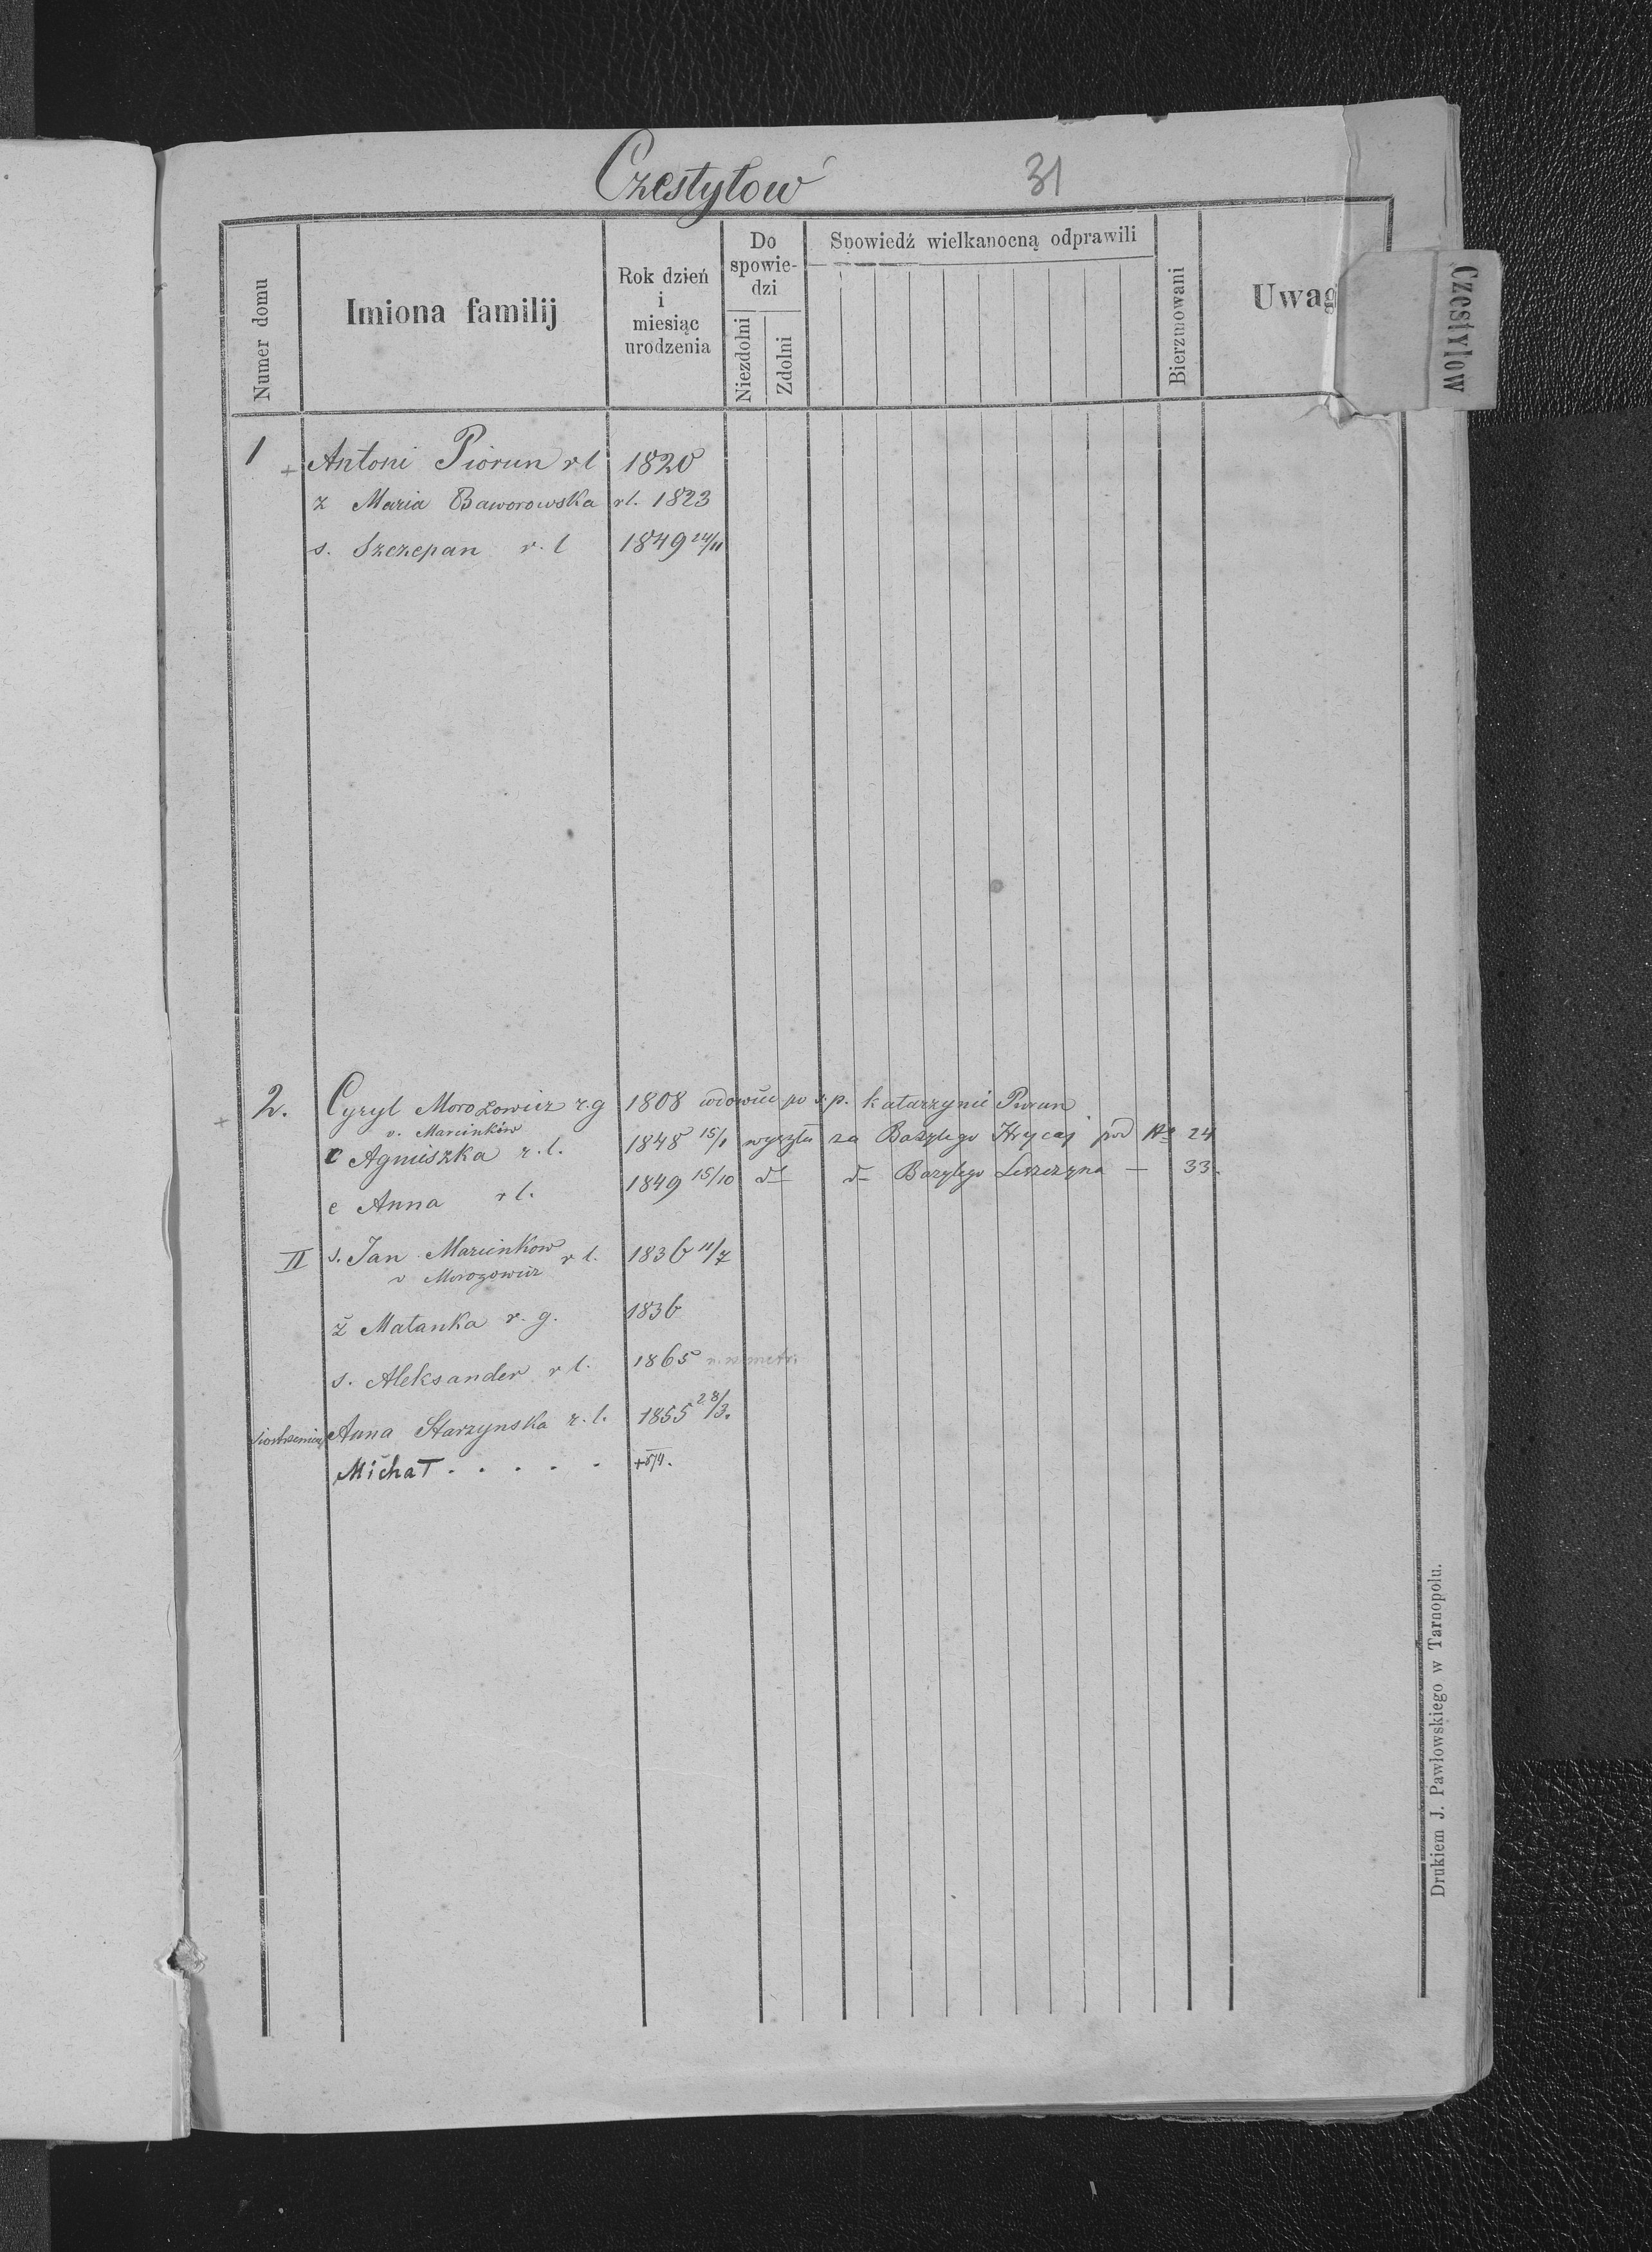 Czestyłów 31
Numer domu
Imiona familij
Rok dzień
i
miesiąc
urodzenia
Do
spowie-
dzi
Niezdolni
Zdolni
Spowiedź wielkanocną odprawili
Bierzmowani
Uwag
Czestylow
1 + Antoni Piorun rl 1820
ż Maria Baworowska rl. 1823
s. Szczepan r. l 1849 24/11
+ 2. Cyryl Morozowicz r. g 1808 wdowiec po ś. p. Katarzynie Piorun
v. Marcinków
c Agnieszka r. l. 1848 15/1 wyszła za Bazylego Hrycaj pod No 24
c Anna r l. 1849 15/10 dt d- Bazylego Leszczyna — 33.
II s. Jan Marcinkow r l. 1836 11/7
v Morozowicz
ż Małanka r. g. 1836
s. Aleksander r l. 1865 n. w metr.
siostrzenica Anna Starzynska r. l. 1855 28/3.
Michał . . . . .
Drukiem J. Pawłowskiego w Tarnopolu.